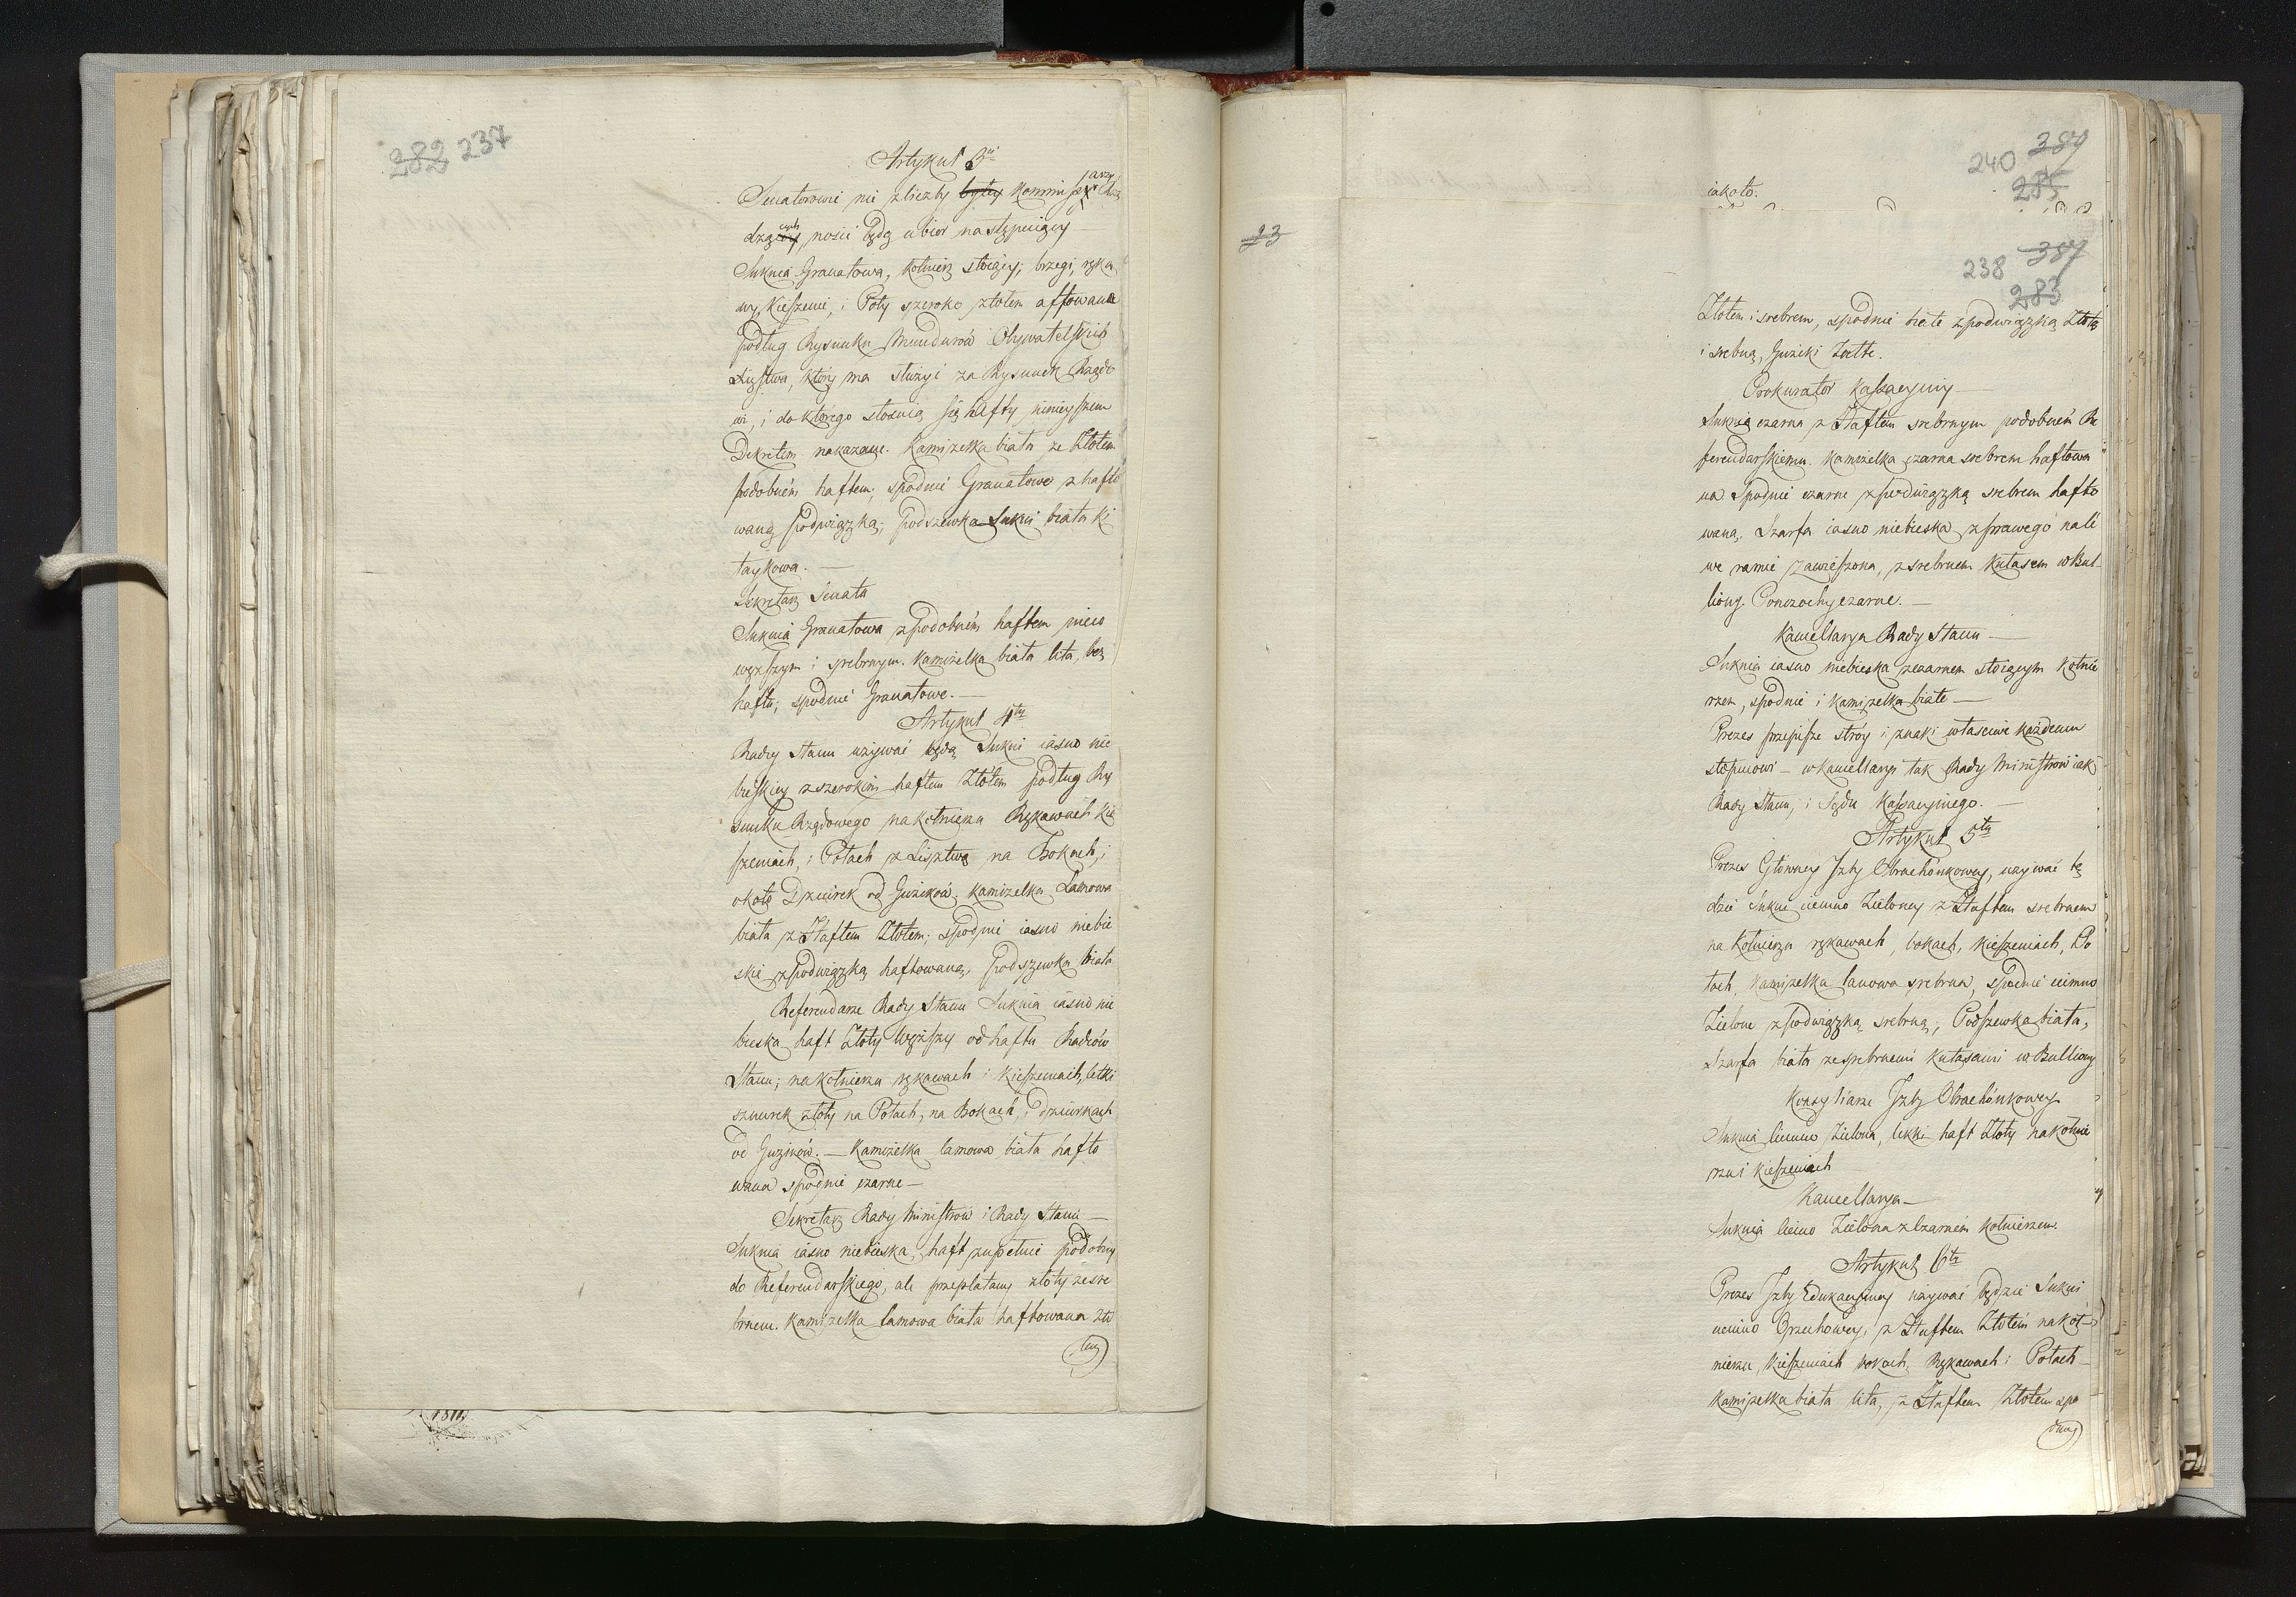 282 237
Artykuł 3ci
Senatorowie nie z liczby byłey Kommissarzy Rzą
dzących, nosić będą ubior następuiący
Suknia Granatowa, kołnierz stoiący, brzegi, ręka
wy, Kieszenie, i Poły szeroko złotem haftowane
podług Rysunku Mundurów Obywatelskich
Xięstwa, który ma służyć za Rysunek Rządo
wy, i do którego stosuią się hafty ninieyszem
Dekretem nakazane. Kamizelka biała ze Złotem
podobném haftem; spodnie Granatowe z hafto
waną podwiązką; podszewka Sukni biała ki
taykowa. —
Sekretarz Senatu
Suknia Granatowa z podobném haftem nieco
węższym i srebrnym. Kamizelka biała lita, bez
haftu; spodnie Granatowe. —
Artykuł 4ty
Radcy Stanu używać będą Sukni iasno nie
bieskiey z szerokim haftem Złotem podług Ry
sunku Rządowego na kołnierzu Rękawach kie
szeniach, i Połach z Lisztwą na Bokach, i
około Dziurek od Guzików, kamizelka Lamowa
biała z Haftem Złotem; spodnie iasno niebie
skie z podwiązką haftowaną, podszewka biała
Referendarze Rady Stanu Suknia iasno nie
bieska haft Złoty węższy od haftu Radców
Stanu; na kołnierzu rękawach i kieszeniach, letki
sznurek złoty na Połach, na Bokach, i dziurkach
od Guzików. — Kamizelka lamowa biała hafto
wana spodnie czarne —
Sekretarz Rady Ministrów i Rady Stanu —
Suknia iasno niebieska, haft zupełnie podobny
do Referendarskiego, ale przeplatany złoty ze sre
brnem. Kamizelka lamowa biała haftowana Zło
tem
1811
23
240 389
285
iako to:
238 387
283
Złotem i srebrem, spodnie białe z podwiązką Złotą
i srebną, Guziki Żółte.
Prokurator Kassacyiny —
Suknia czarna z Haftem srebrnym podobném Re
ferendarskiemu. Kamizelka czarna srebrem haftowa
na Spodnie czarne z podwiązką srebrem hafto
waną. Szarfa iasno niebieska z prawego na le
we ramie zawieszona, z srebrnem Kutasem w Bul-
liony. Pończochy czarne. —
Kancellarya Rady Stanu —
Suknia iasno niebieska z czarnem stoiącym kołnie
rzem, spodnie i kamizelka białe —
Prezes przepisze stróy i znaki właściwe każdemu
stopniowi — w Kancellaryi tak Rady Ministrów iak
Rady Stanu, i Sądu Kassacyinego. —
Artykuł 5ty
Prezes Głowney Izby Obrachónkowey, używać bę
dzie Sukni ciemno Zieloney z Haftem srebrnem
na Kołnierzu rękawach, bokach, kieszeniach, Po
łach, Kamizelka lamowa srebrna, spodnie ciemno
Zielone z podwiązką srebrną; Podszewka biała,
Szarfa biała ze srebrnemi kutasami w Bulliony
Konsyliarze Izby Obrachónkowey
Suknia Ciemno Zielona, lekki haft Złoty na kołnie
rzu i kieszeniach
Kancellarya —
Suknia Ciemno Zielona z Czarném kołnierzem.
Artykuł 6ty
Prezes Izby Edukacyiney używać będzie Sukni
ciemno Orzechowey, z Haftem Złotém na koł-
nierzu, kieszeniach bokach, Rękawach i Połach —
Kamizelka biała lita, z Haftem Złotem spo
dnie